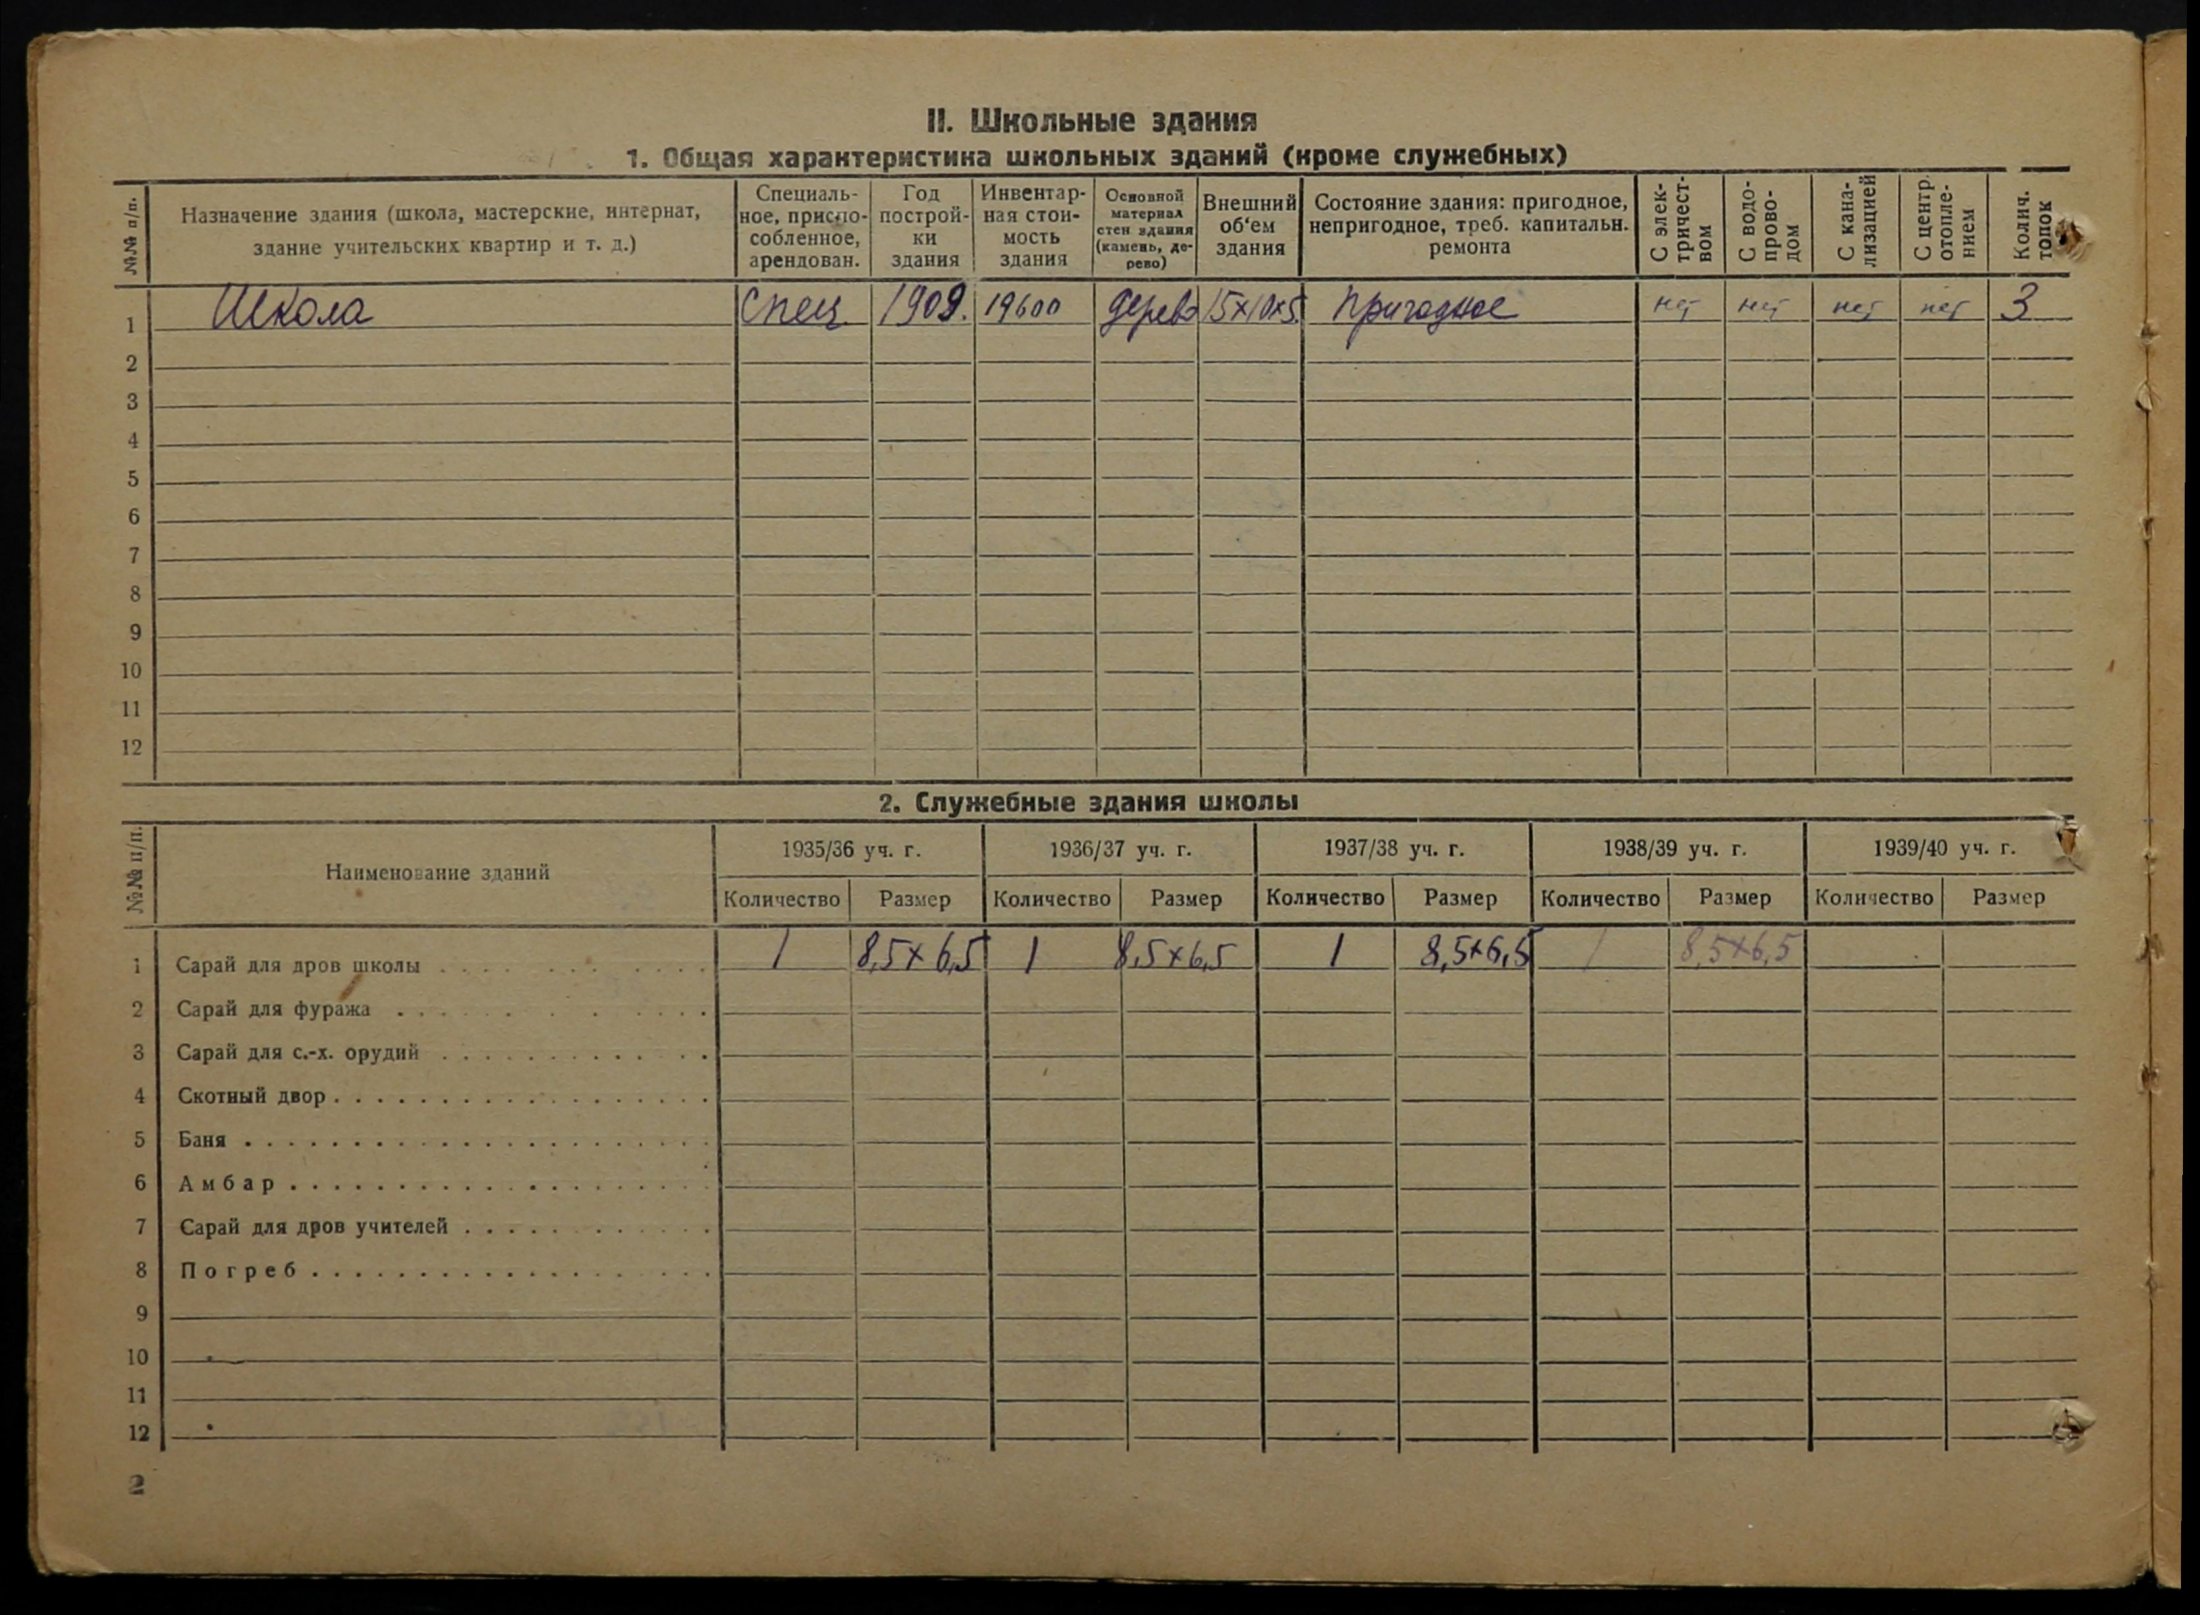 II. Школьные здания
1. Общая характеристика школьных зданий (кроме служебных)
№№ п/п.
Назначение здания (школа, мастерские, интернат,
здание учительских квартир и т. д.)
Специаль-
ное, приспо-
собленное,
арендован.
Год
построй-
ки
здания
Инвентар-
ная стои-
мость
здания
Основной
материал
стен здания
(камень, де-
рево)
Внешний
об‘ем
здания
Состояние здания: пригодное,
непригодное, треб. капитальн.
ремонта
С элек-
тричест-
вом
С водо-
прово-
дом
С кана-
лизацией
С центр.
отопле-
нием
Колич.
топок
1 Школа Спец. 1909. 19600 дерево 15х10х5 пригодное нет нет нет нет 3
2
3
4
5
6
7
8
9
10
11
12
2. Служебные здания школы
№№ п/п.
Наименование зданий
1935/36 уч. г. 1936/37 уч. г. 1937/38 уч. г. 1938/39 уч. г. 1939/40 уч. г.
Количество Размер Количество Размер Количество Размер Количество Размер Количество Размер
1 Сарай для дров школы 1 8,5х6,5 1 8,5х6,5 1 8,5х6,5 1 8,5х6,5
2 Сарай для фуража
3 Сарай для с.-х. орудий
4 Скотный двор
5 Баня
6 Амбар
7 Сарай для дров учителей
8 Погреб
9
10
11
12
2